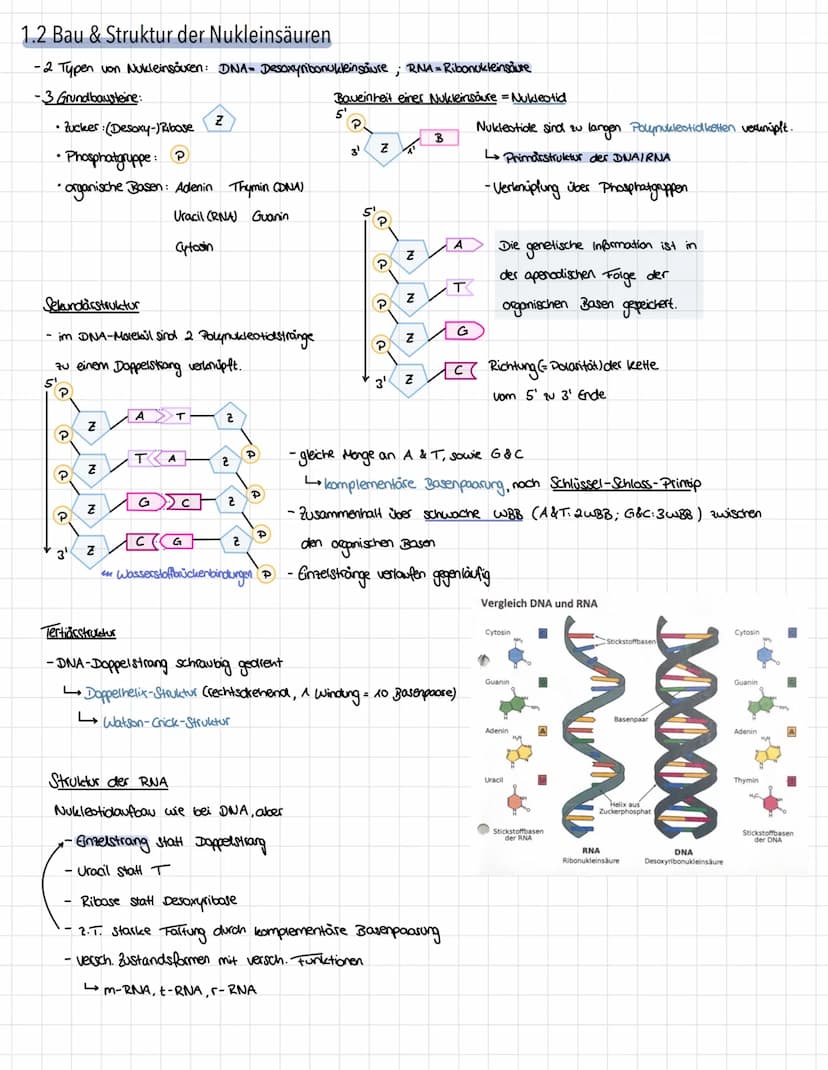 1.2 Bau & Struktur der Nukleinsäuren
- 2 Typen von Nukleinsäuren: DNA = Desoxyribonukleinsäure ; RNA = Ribonukleinsäure
- 3 Grundbausteine:
• Zucker: (Desoxy-)Ribose Z
• Phosphatgruppe: P
• organische Basen: Adenin Thymin (DNA)
Uracil (RNA) Guanin
Cytosin
Baueinheit einer Nukleinsäure = Nukleotid
5'
P
3' Z 1' B
Nukleotide sind zu langen Polynukleotidketten verknüpft.
↳ Primärstruktur der DNA/RNA
- Verknüpfung über Phosphatgruppen
5'
P
Z A
P
Z T
P
Z G
P
Z C
3'
Die genetische Information ist in
der aperiodischen Folge der
organischen Basen gespeichert.
Richtung (= Polarität) der Kette
vom 5' zu 3' Ende
Sekundärstruktur
- im DNA-Molekül sind 2 Polynukleotidstränge
zu einem Doppelstrang verknüpft.
5'
P
Z A T Z
P P
Z T A Z
P P
Z G C Z
P P
Z C G Z
3'
P
Wasserstoffbrückenbindungen
- gleiche Menge an A & T, sowie G & C
↳ komplementäre Basenpaarung, nach Schlüssel-Schloss-Prinzip
- Zusammenhalt über schwache WBB (A&T: 2WBB; G&C: 3WBB) zwischen
den organischen Basen
- Einzelstränge verlaufen gegenläufig
Tertiärstruktur
- DNA-Doppelstrang schraubig gedreht
↳ Doppelhelix-Struktur (rechtsdrehend, 1 Windung = 10 Basenpaare)
↳ Watson-Crick-Struktur
Struktur der RNA
Nukleotidaufbau wie bei DNA, aber
- Einzelstrang statt Doppelstrang
- Uracil statt T
- Ribose statt Desoxyribose
- z.T. starke Faltung durch komplementäre Basenpaarung
- versch. Zustandsformen mit versch. Funktionen
↳ m-RNA, t-RNA, r-RNA
Vergleich DNA und RNA
Cytosin
Guanin
Adenin A
Uracil
Stickstoffbasen
der RNA
Stickstoffbasen
Basenpaar
Helix aus
Zuckerphosphat
RNA
Ribonukleinsäure
DNA
Desoxyribonukleinsäure
Cytosin
Guanin
Adenin A
Thymin
Stickstoffbasen
der DNA